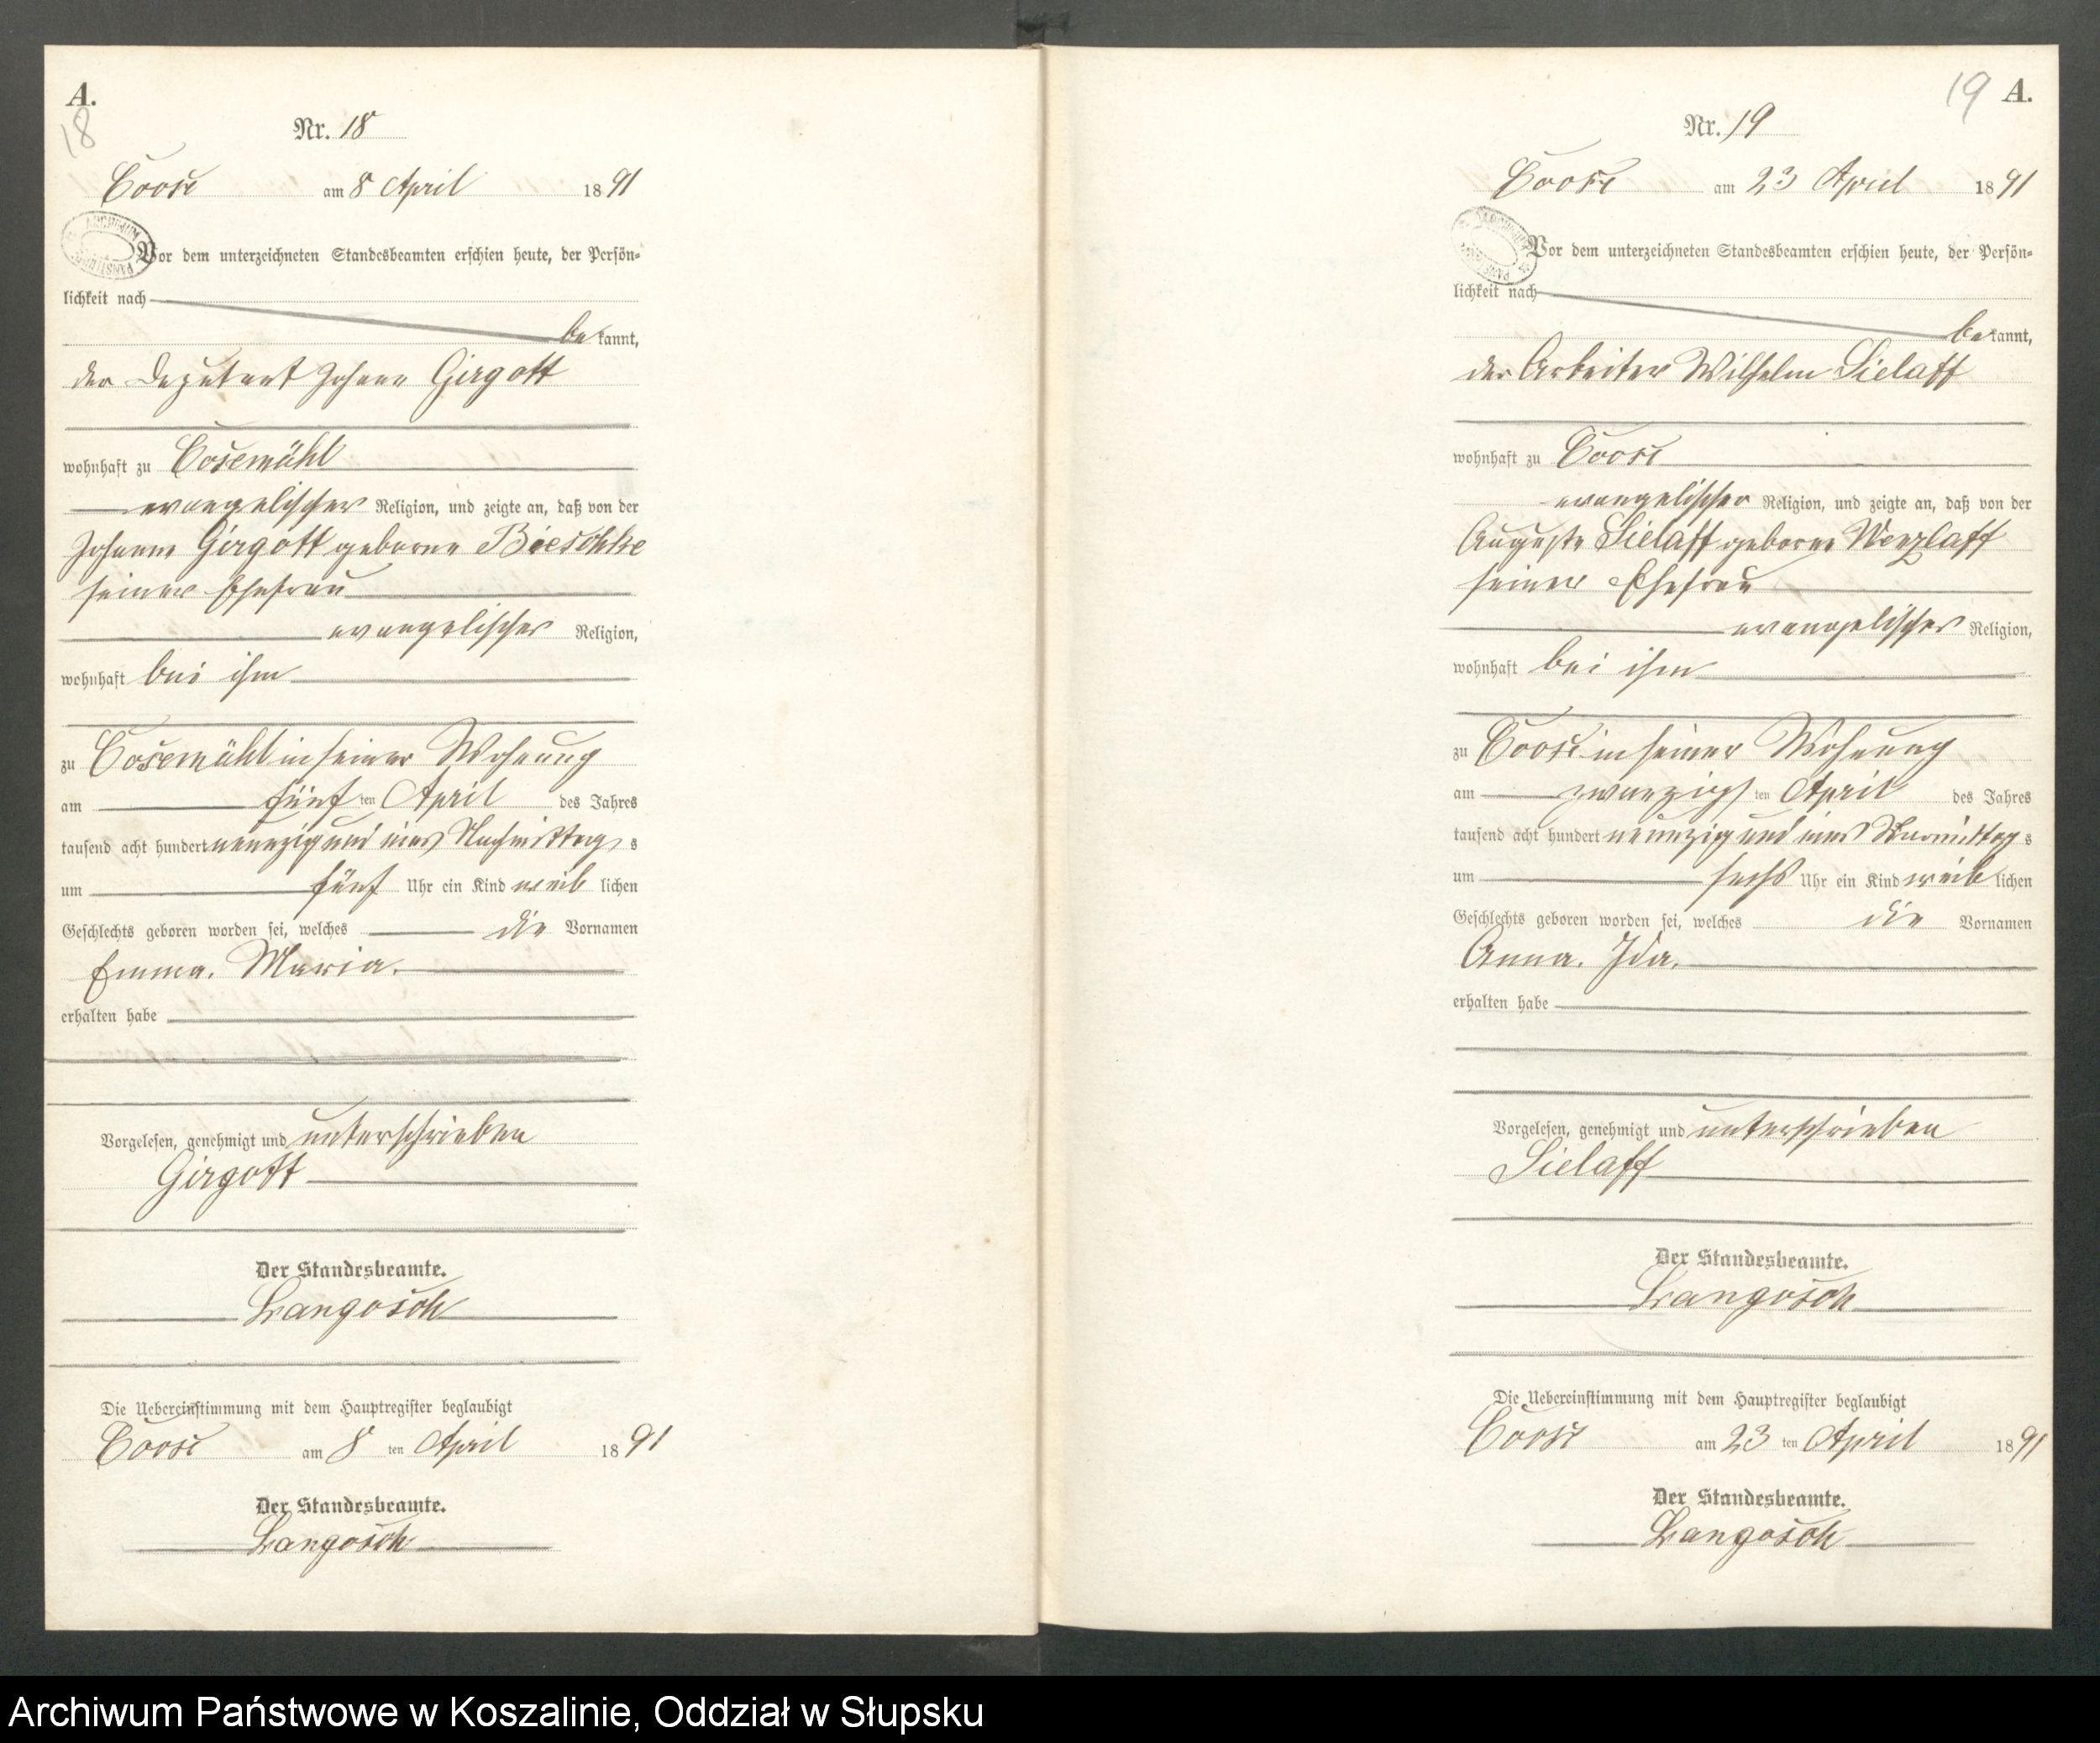 A.
18
Nr. 18
Coose am 8 April 1891
Vor dem unterzeichneten Standesbeamten erschien heute, der Persön-
lichkeit nach
bekannt,
der Deputant Johann Girgott
wohnhaft zu Cosemühl
evangelischer Religion, und zeigte an, daß von der
Johanne Girgott geborne Bieschke
seiner Ehefrau
evangelischer Religion,
wohnhaft bei ihm
zu Cosemühl in seiner Wohnung
am fünf ten April des Jahres
tausend acht hundert neunzig und eins Nachmittags
um fünf Uhr ein Kind weiblichen
Geschlechts geboren worden sei, welches die Vornamen
Emma. Maria.
erhalten habe
Vorgelesen, genehmigt und unterschrieben
Girgott
Der Standesbeamte.
Langosch
Die Uebereinstimmung mit dem Hauptregister beglaubigt
Coose am 8 ten April 1891
Der Standesbeamte.
Langosch
19 A.
Nr. 19
Coose am 23 April 1891
Vor dem unterzeichneten Standesbeamten erschien heute, der Persön-
lichkeit nach
bekannt,
der Arbeiter Wilhelm Sielaff
wohnhaft zu Coose
evangelischer Religion, und zeigte an, daß von der
Auguste Sielaff geborne Wenzlaff
seiner Ehefrau
evangelischer Religion,
wohnhaft bei ihm
zu Coose in seiner Wohnung
am zwanzigs ten April des Jahres
tausend acht hundert neunzig und eins Vormittags
um sechs Uhr ein Kind weiblichen
Geschlechts geboren worden sei, welches die Vornamen
Anna. Ida.
erhalten habe
Vorgelesen, genehmigt und unterschrieben
Sielaff
Der Standesbeamte.
Langosch
Die Uebereinstimmung mit dem Hauptregister beglaubigt
Coose am 23 ten April 1891
Der Standesbeamte.
Langosch
Archiwum Państwowe w Koszalinie, Oddział w Słupsku